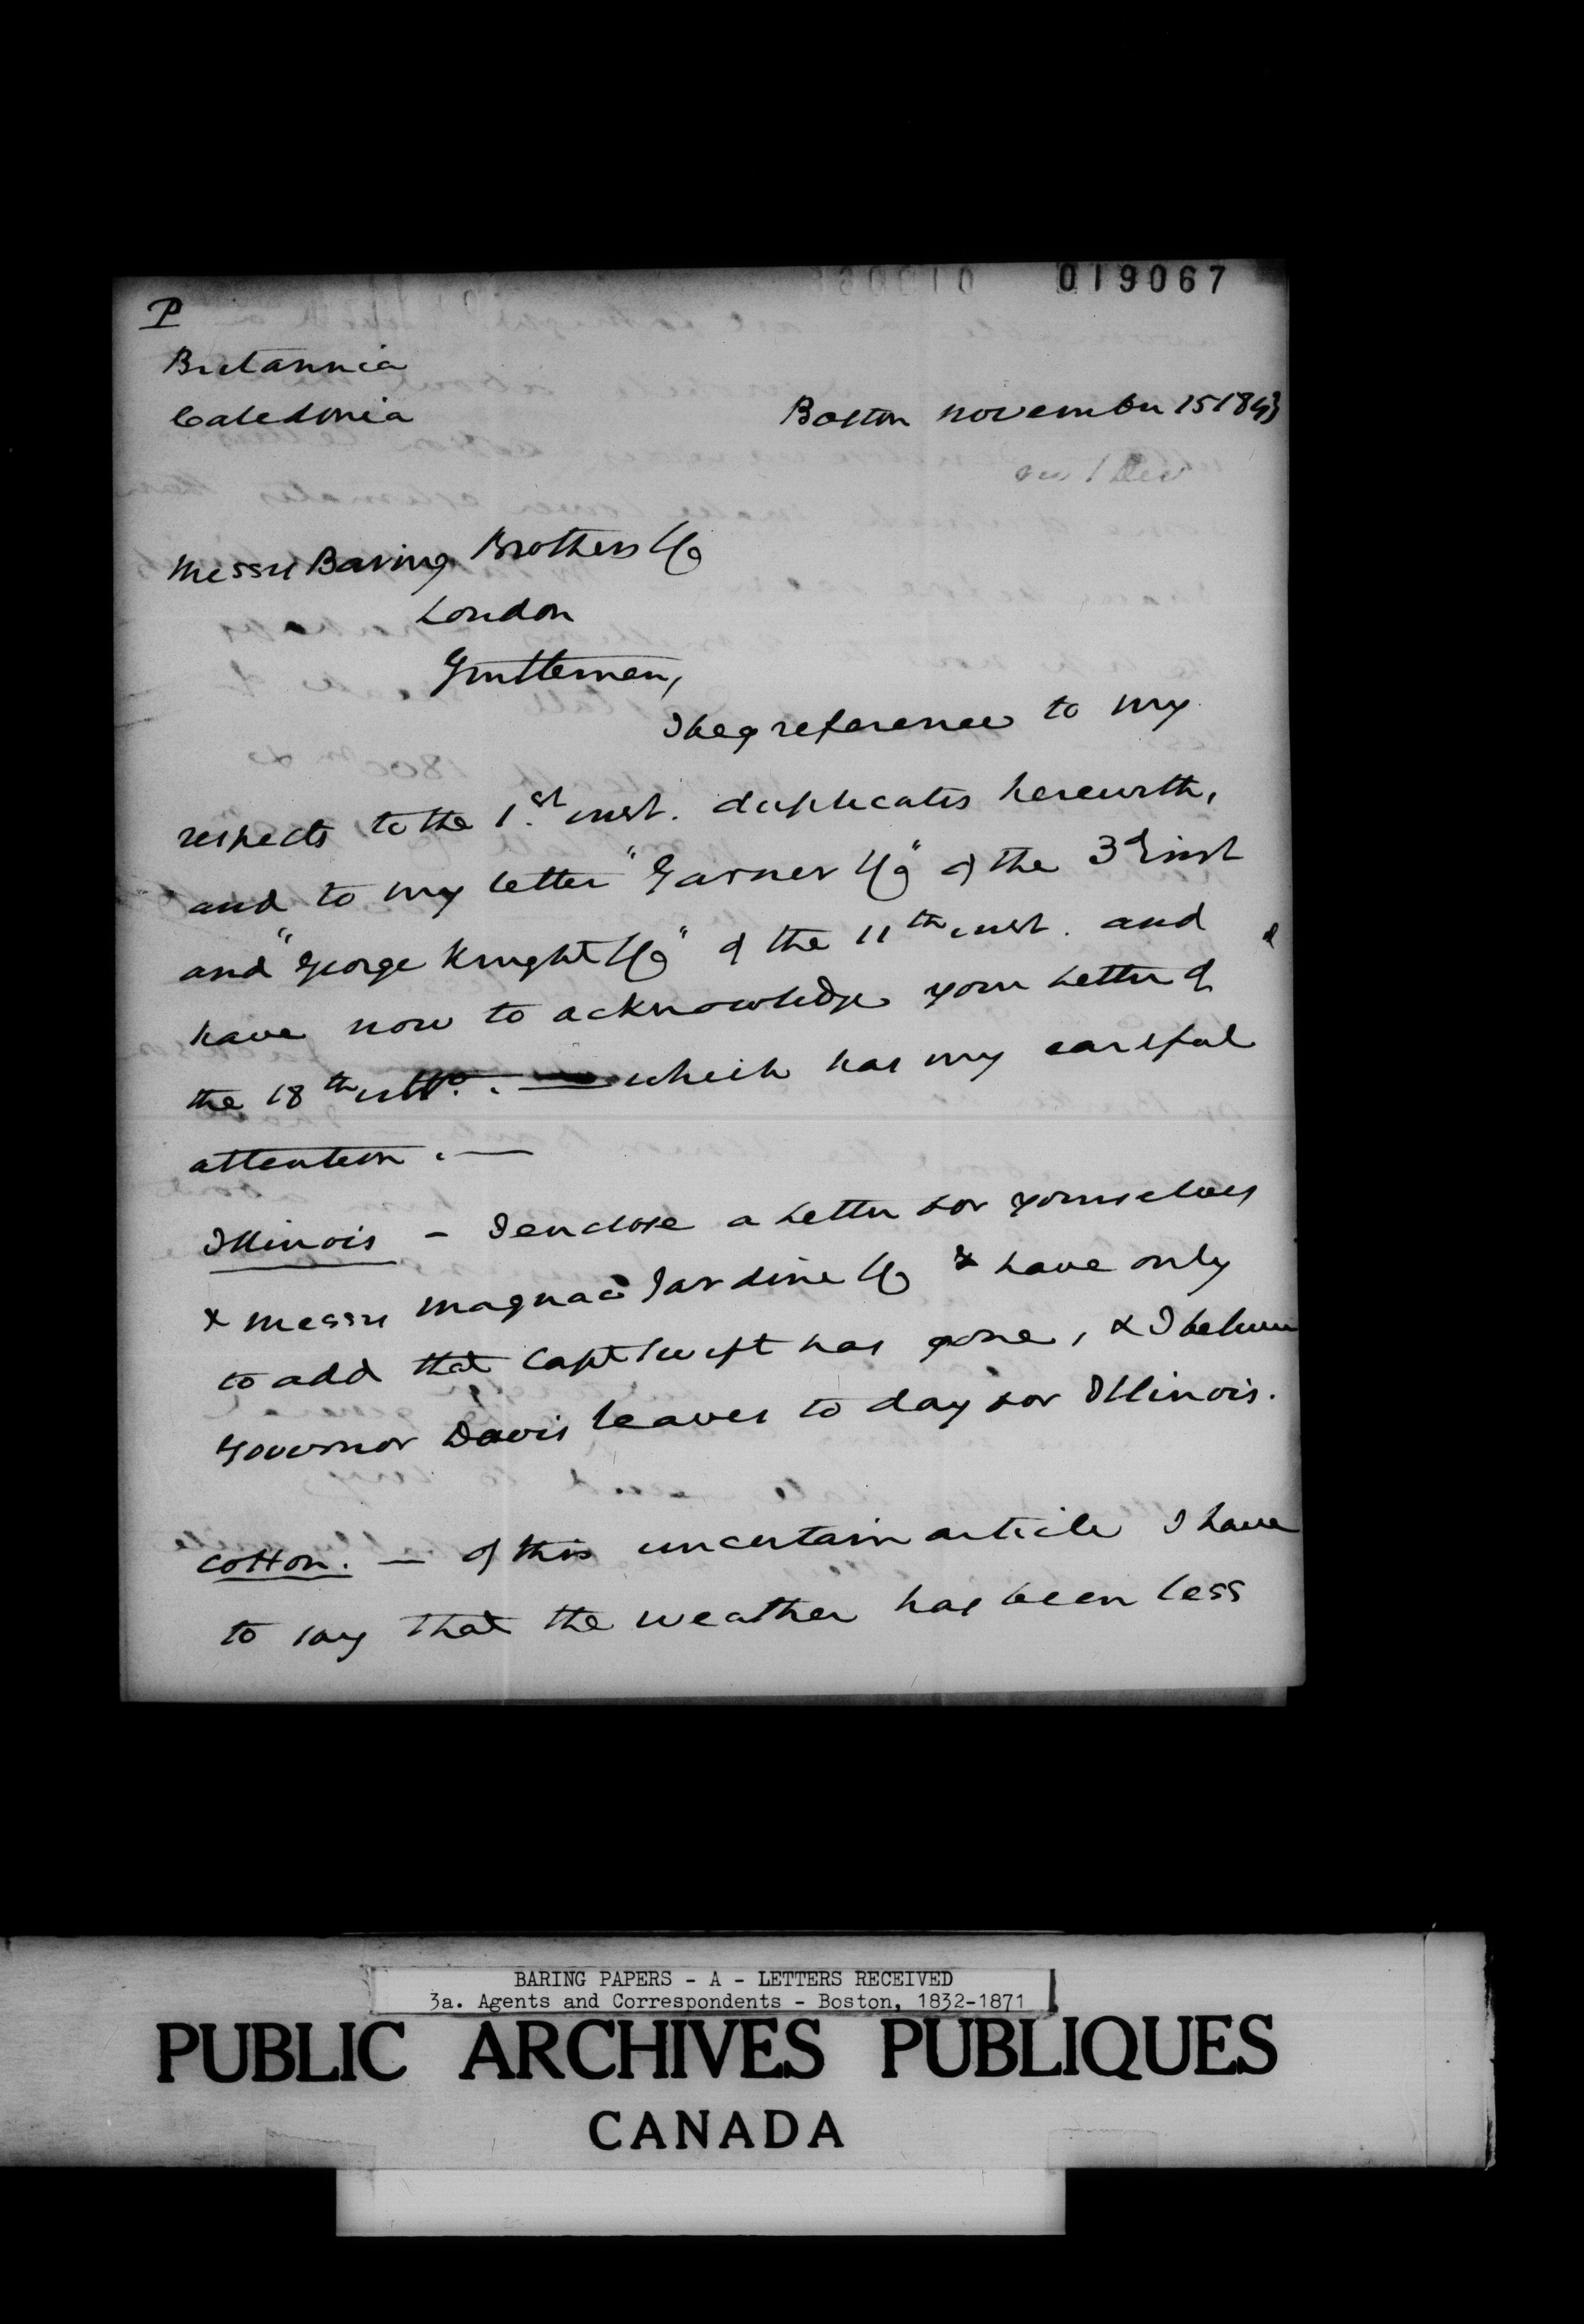 019067
P
Britannia
Caledonia
Boston November 15 1843
rec 1 Dec
Messrs Baring Brothers & Co
London
Gentlemen,
I beg reference to my
respects to the 1st inst. duplicates herewith,
and to my letter "Garner & Co" of the 3d inst
and "George Knight & Co" of the 11th inst. and
have now to acknowledge your letter of
the 18th ulto. — which has my careful
attention. —
Illinois - I enclose a letter for yourselves
& Messrs Magniac Jardine & Co & have only
to add that Capt Swift has gone, & I believe
Governor Davis leaves to day for Illinois.
Cotton. — of this uncertain article I have
to say that the weather has been less
BARING PAPERS - A - LETTERS RECEIVED
3a. Agents and Correspondents - Boston, 1832-1871
PUBLIC ARCHIVES PUBLIQUES
CANADA